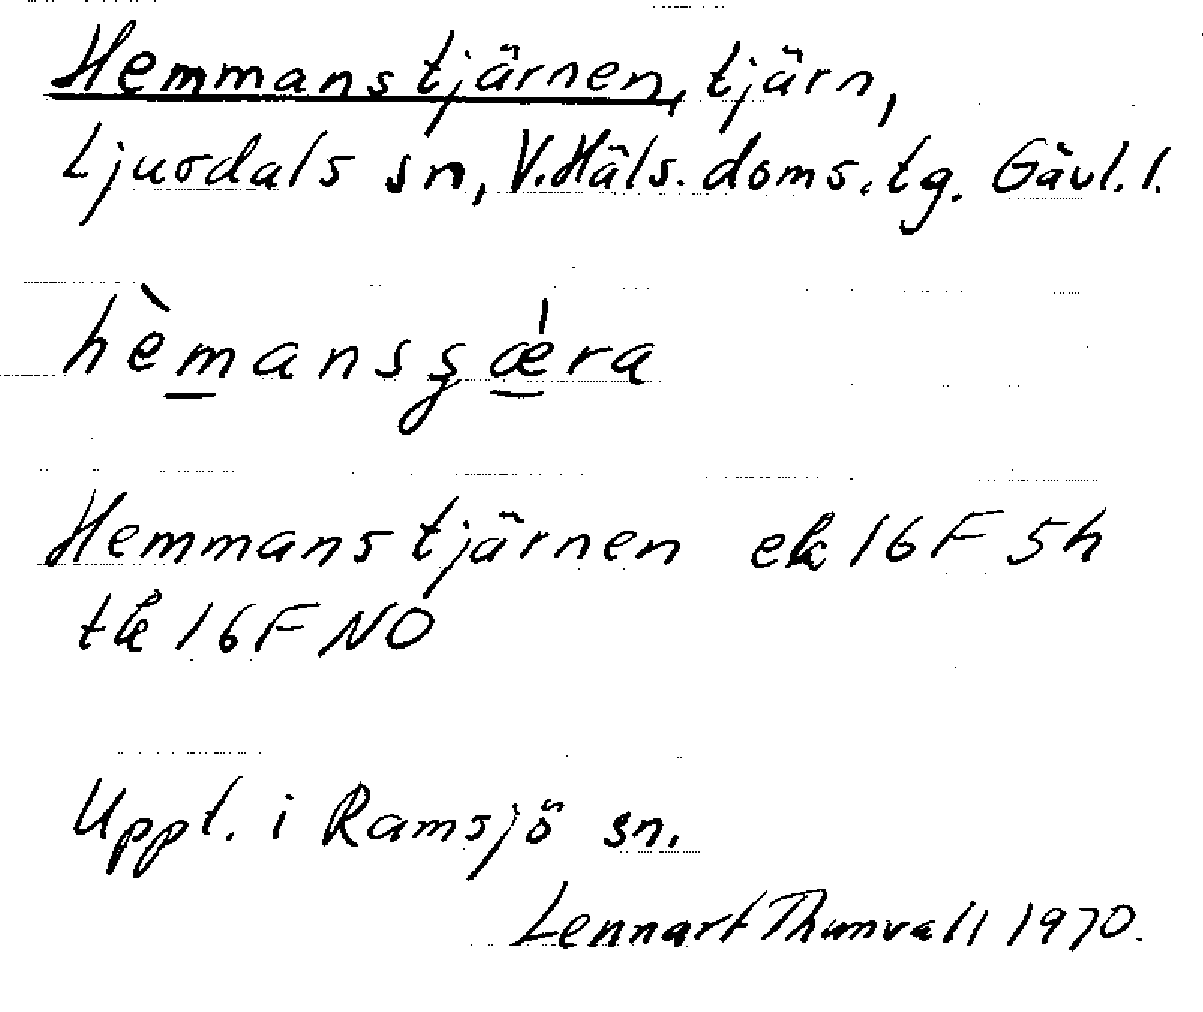 Hemmanstjärnen, tjärn,
Ljusdals sn, V. Häls. doms. tg. Gävl. l.
hèmansʂǽra
Hemmanstjärnen ek 16F 5h
tk 16F NO
Uppt. i Ramsjö sn.
Lennart Thunvall 1970.